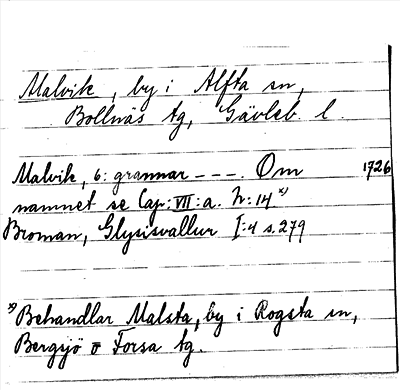 Malvik, by i Alfta sn,
Bollnäs tg, Gävleb. l.
Malvik, 6: grannar - - -. Om 1726
namnet se Cap: VII: a. N: 14 x)
Broman, Glysisvallur I:4 s. 279
x) Behandlar Malsta, by i Rogsta sn,
Bergsjö o Forsa tg.